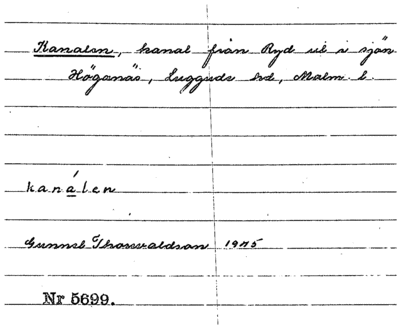 Kanalen, kanal från Ryd ut i sjön
Höganäs, Luggude hd, Malm. l.
kanálen
Gunnel Thorvaldson 1945
Nr 5699.